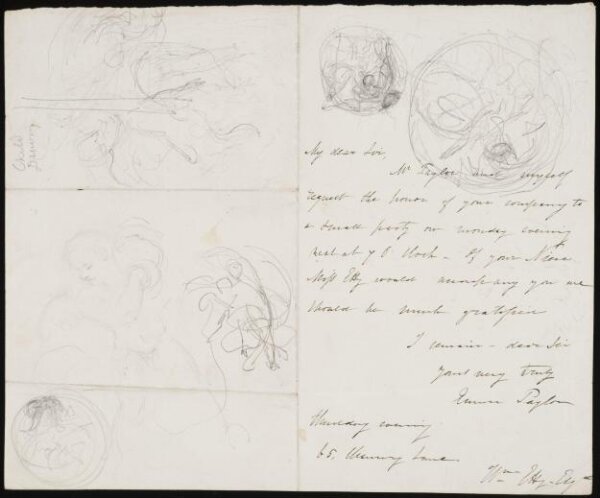 My dear Sir,
Mr Taylor and myself
request the honor of your company to
a small party on monday evening
next at 7 O'Clock - If your Niece
Miss Etty would accompany you we
should be much gratified
I remain - dear Sir
yours very truly
Emma Taylor
Thursday evening
65, Lane
Wm Etty. Esq
Child